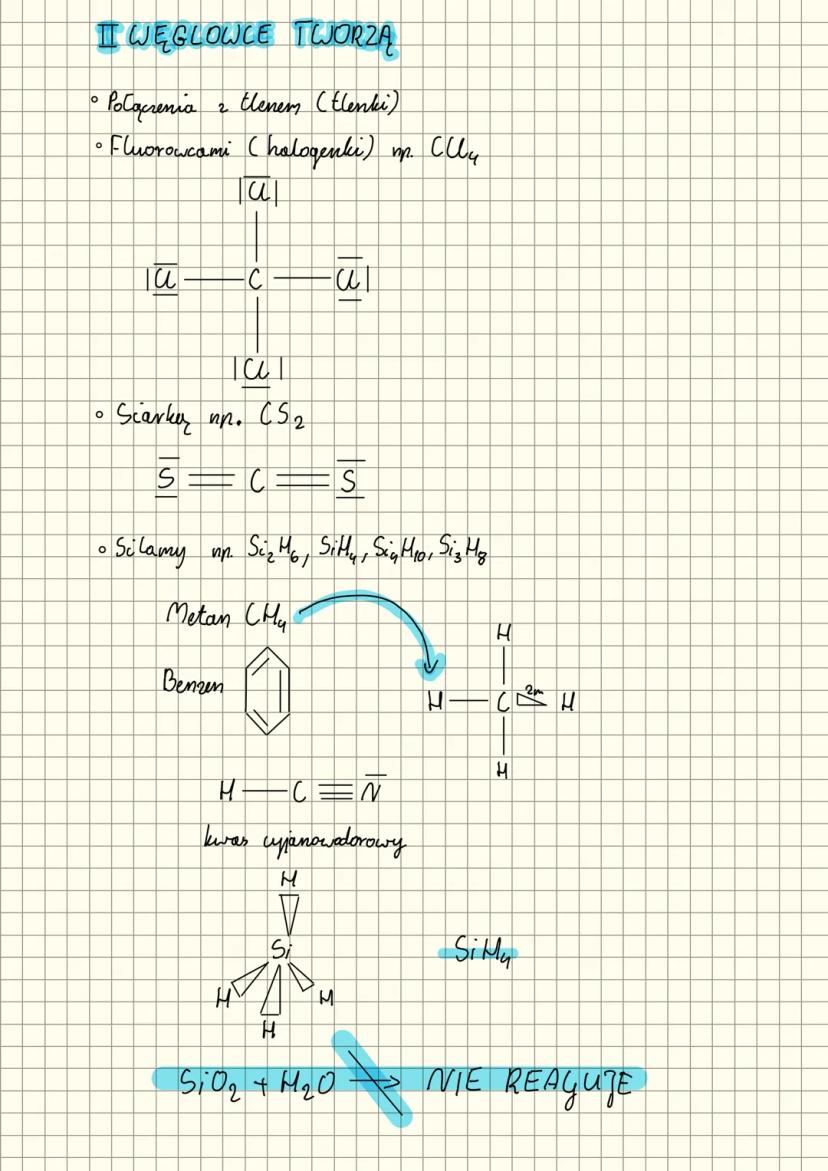 II WĘGLOWCE TWORZĄ
• Połączenia z tlenem (tlenki)
• Fluorowcami (halogenki) np. CCl₄
|Cl|
|Cl — C — Cl|
|Cl|
• Siarką np. CS₂
S = C = S
• Silany np. Si₂H₆, SiH₄, Si₄H₁₀, Si₃H₈
Metan CH₄
H
Benzen
H — C H
H
H — C ≡ N
kwas cyjanowodorowy
H
Si
SiH₄
H H
H
SiO₂ + H₂O → NIE REAGUJE